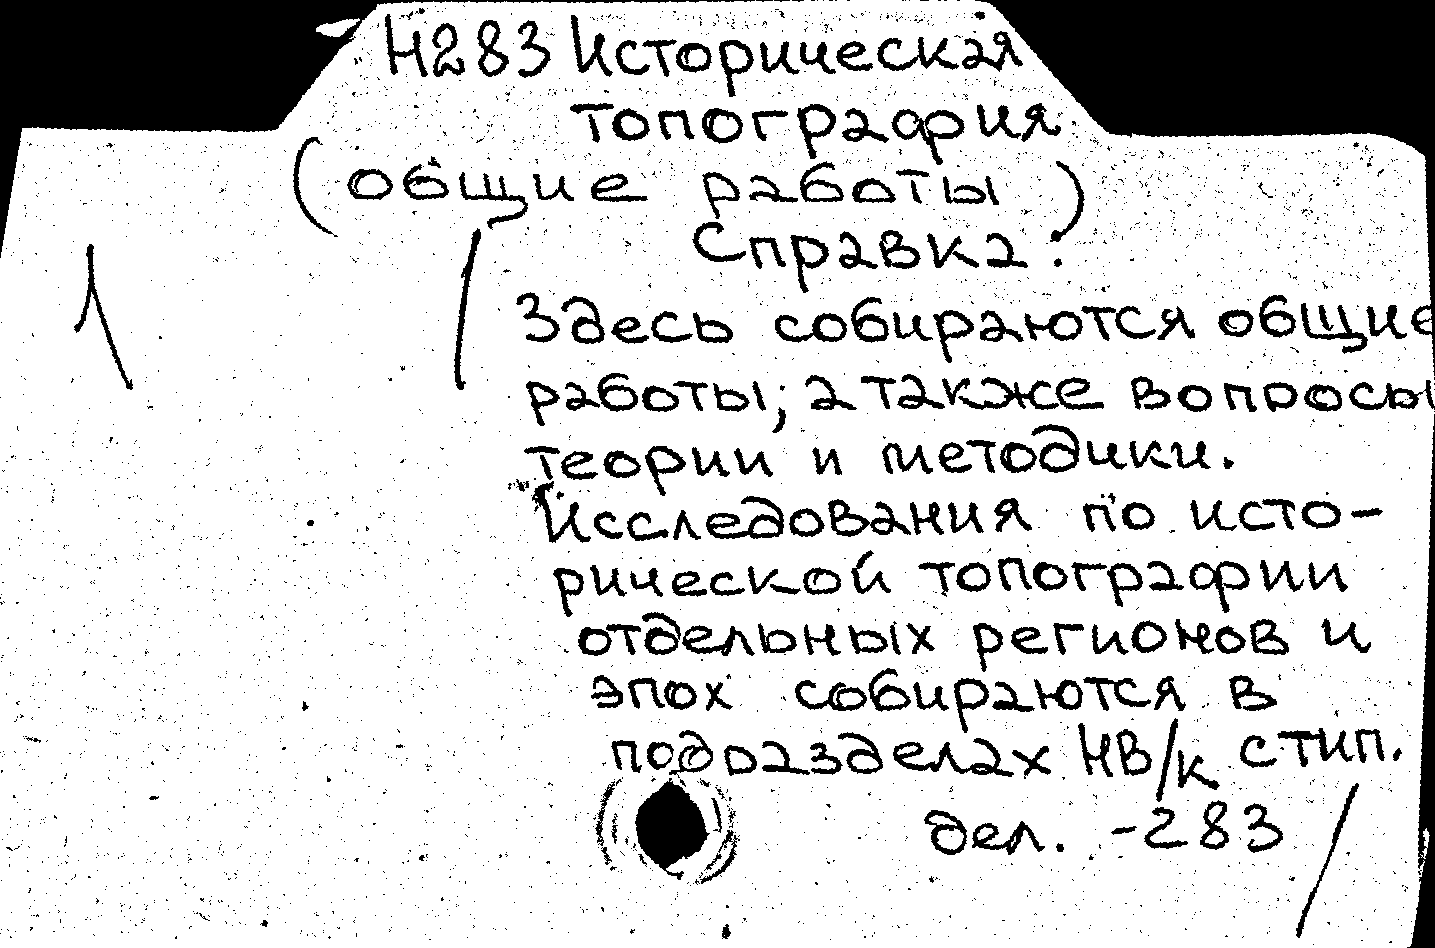 Н283 Историческая
топография
(общие работы)
Справка:
Здесь собираются общие
работы, а также вопросы
теории и методики.
Исследования по исто-
рической топографии
отдельных регионов и
эпох собираются в
подразделах НВ/к с тип.
дел. -283